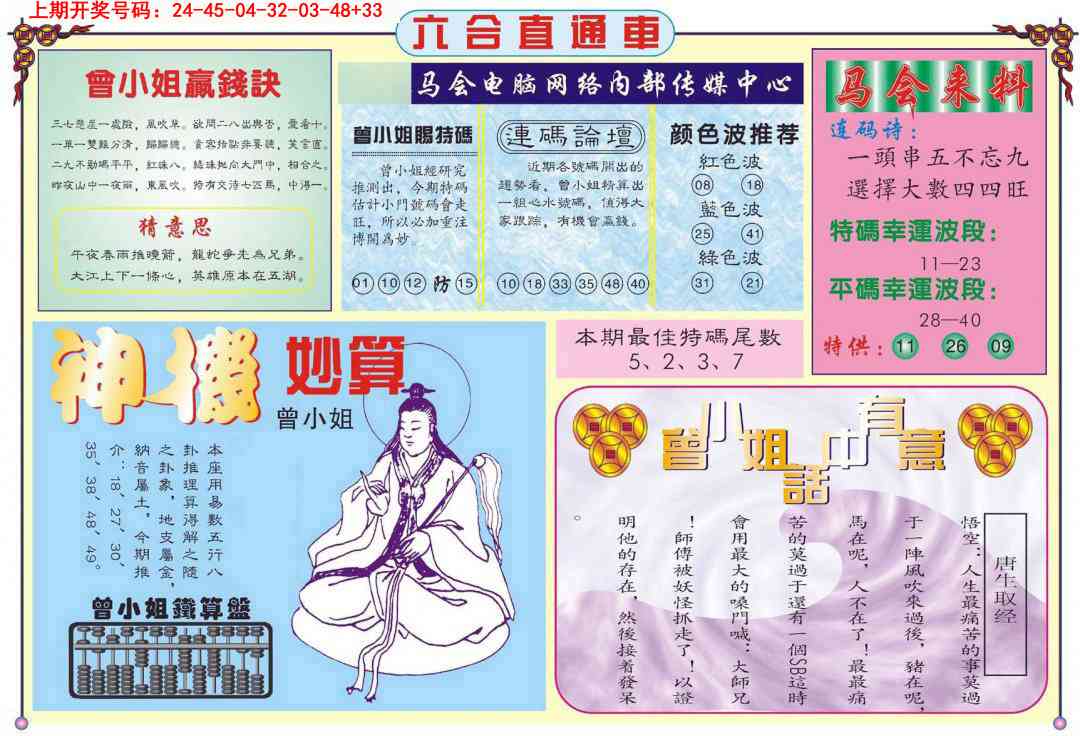 上期开奖号码：24-45-04-32-03-48+33
六合直通車
马会电脑网络内部传媒中心
曾小姐贏錢訣
一單一雙難分清，歸歸總。
二九不動碼平平，紅珠八。
昨夜山中一夜雨，東風吹。
猜意思
午夜春雨推曉箭，龍蛇爭先為兄弟。
大江上下一條心，英雄原本在五湖。
曾小姐賜特碼
曾小姐經研究
推測出，今期特碼
估計小門號碼會走
旺，所以必加重注
博開為妙
01 10 12 防 15
連碼論壇
近期各號碼開出的
趨勢看，曾小姐精算出
一組心水號碼，值得大
家跟踪，有機會贏錢。
10 18 33 35 48 40
颜色波推荐
紅色波
08 18
藍色波
25 41
綠色波
31 21
马会来料
连码诗：
一頭串五不忘九
選擇大數四四旺
特碼幸運波段：
11—23
平碼幸運波段：
28—40
特供：11 26 09
本期最佳特碼尾數
5、2、3、7
神機妙算
曾小姐
本座用易數五行八
卦推理算得解之隨
之卦象，地支屬金，
納音屬土，今期推
介：18、27、30、
35、38、48、49。
曾小姐鐵算盤
曾小姐話中有意
唐生取经
悟空：人生最痛苦的事莫過
于一陣風吹來過後，豬在呢，
馬在呢，人不在了！最最痛
苦的莫過于還有一個SB這時
會用最大的嗓門喊：大師兄
！師傅被妖怪抓走了！以證
明他的存在，然後接着發呆
。